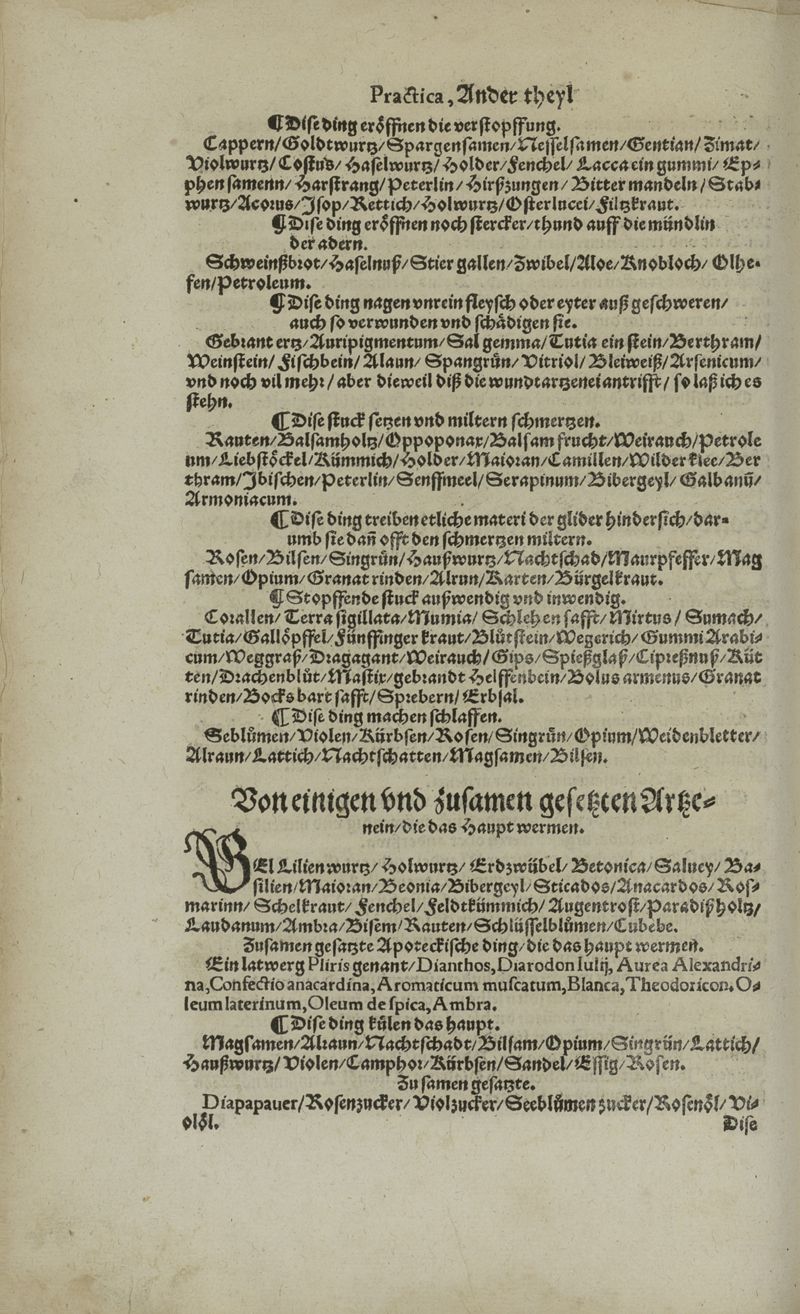 Practica, Ander theyl
¶ Dise ding eröffnen die verstopffung.
Cappern/Goldtwurtz/Spargensamen/Nesselsamen/Gentian/Zimat/
Violwurtz/Costus/Haselwurtz/Holder/Fenchel/Lacca ein gummi/Ep⸗
phen samenn/Harstrang/Peterlin/Hirßzungen/Bitter mandeln/Stab⸗
wurtz/Acorus/Isop/Rettich/Holwurtz/Osterlucei/Filtzkraut.
¶ Dise ding eröffnen noch stercker/thund auff die mündlin
der adern.
Schweinßbrot/Haselnuß/Stier gallen/Zwibel/Aloe/Knobloch/Olhe⸗
fen/Petroleum.
¶ Dise ding nagen vnrein fleysch oder eyter auß geschweren/
auch so verwunden vnd schädigen sie.
Gebrant ertz/Auripigmentum/Sal gemma/Tutia ein stein/Berthram/
Weinstein/Fischbein/Alaun/Spangrůn/Vitriol/Bleiweiß/Arsenicum/
vnd noch vil mehr/aber dieweil diß die wundtartzenei antrifft/so laß ich es
stehn.
¶ Dise stuck setzen vnd miltern schmertzen.
Rauten/Balsamholtz/Oppoponax/Balsam frucht/Weirauch/Petrole
um/Liebstöckel/Kümmich/Holder/Maioran/Camillen/Wilder klee/Ber
thram/Ibischen/Peterlin/Senffmeel/Serapinum/Bibergeyl/Galbanũ/
Armoniacum.
¶ Dise ding treiben etliche materi der glider hindersich/dar⸗
umb sie dañ offt den schmertzen miltern.
Rosen/Bilsen/Singrůn/Haußwurtz/Nachtschad/Maurpfeffer/Mag
samen/Opium/Granat rinden/Alrun/Karten/Bürgelkraut.
¶ Stopffende stuck außwendig vnd inwendig.
Corallen/Terra sigillata/Mumia/Schlehen safft/Mirtus/Sumach/
Tutia/Gallöpffel/Fünffinger kraut/Blůtstein/Wegerich/Gummi Arabi⸗
cum/Weggraß/Dragagant/Weirauch/Gips/Spießglaß/Cipreßnuß/Küt
ten/Drachenblůt/Mastix/gebrandt Helffenbein/Bolus armenus/Granat
rinden/Bocks bart safft/Sprebern/Erbsal.
¶ Dise ding machen schlaffen.
Seblůmen/Violen/Kürbsen/Rosen/Singrůn/Opium/Weidenbletter/
Alraun/Lattich/Nachtschatten/Magsamen/Bilsen.
Von einigen vnd zusamen gesetzten Artze⸗
nein/die das Haupt wermen.
GEl Lilien wurtz/Holwurtz/Erdzwübel/Betonica/Saluey/Ba⸗
silien/Maioran/Beonia/Bibergeyl/Sticados/Anacardos/Ros⸗
marinn/Schelkraut/Fenchel/Feldtkümmich/Augentrost/Paradißholtz/
Laudanum/Ambra/Bisem/Rauten/Schlüsselblůmen/Cubebe.
Zusamen gesatzte Apoteckische ding/die das haupt wermen.
Ein latwerg Pliris genant/Dianthos, Diarodon Iulij, Aurea Alexandri⸗
na, Confectio anacardina, Aromaticum muscatum, Blanca, Theodoricon. O⸗
leum laterinum, Oleum de spica, Ambra.
¶ Dise ding külen das haupt.
Magsamen/Alraun/Nachtschadt/Bilsam/Opium/Singrün/Lattich/
Haußwurtz/Violen/Camphor/Kürbsen/Sandel/Essig/Rosen.
Zusamen gesatzte.
Diapapauer/Rosenzucker/Violzucker/Seeblůmen zucker/Rosenöl/Vi⸗
olöl.
Dise